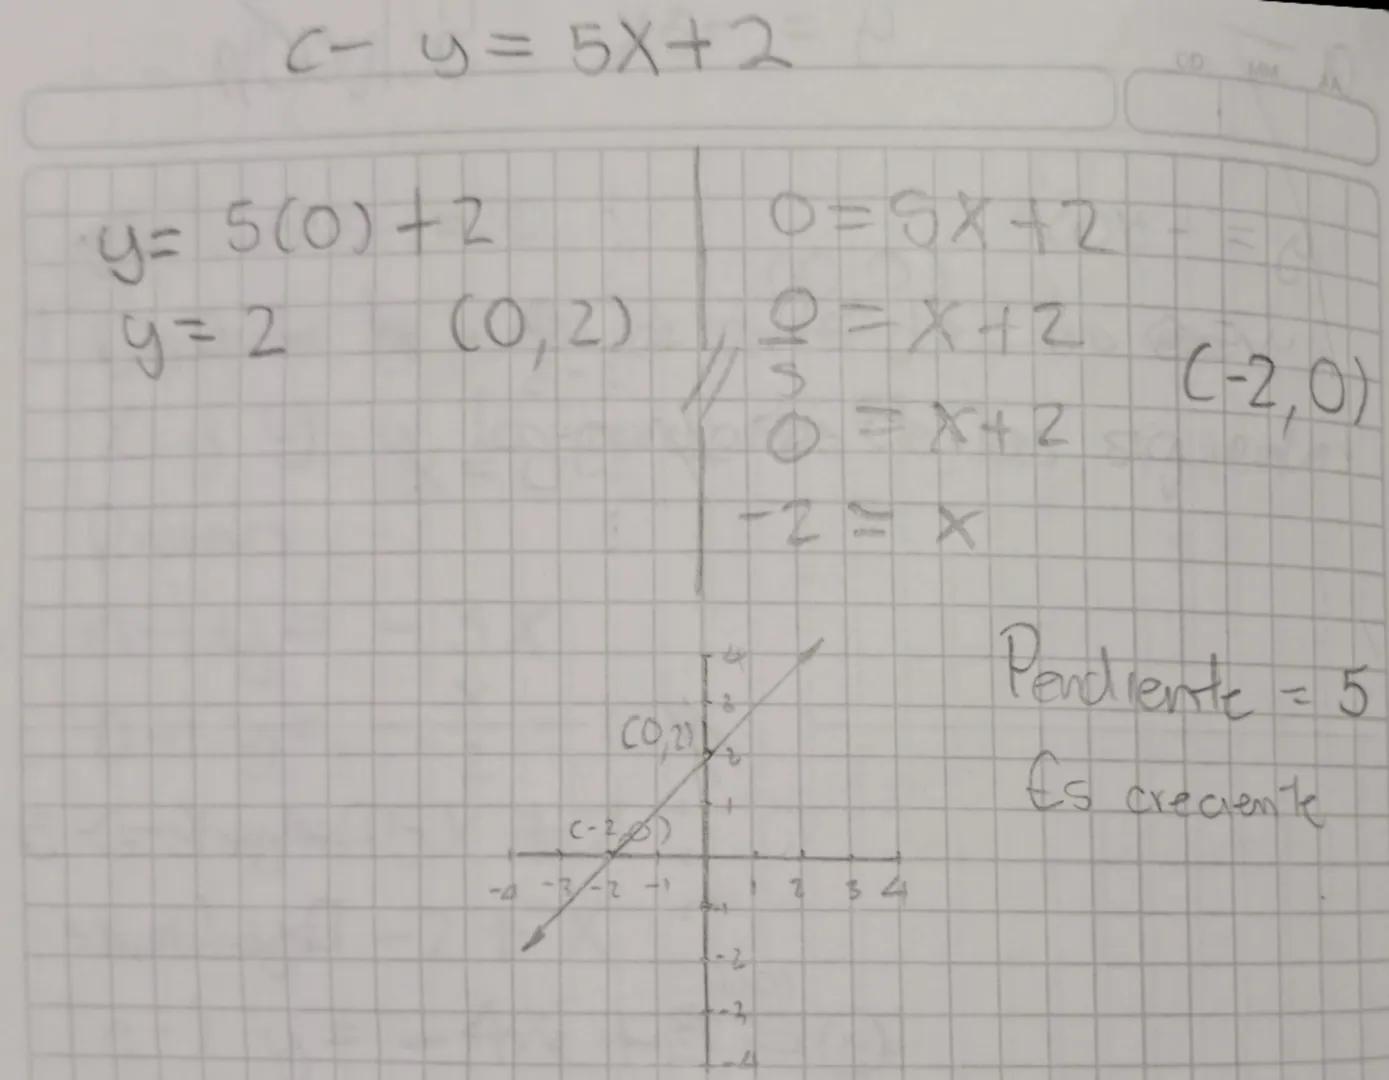 c- y = 5x+2
DD MM AA
y= 5(0)+2
y= 2 (0,2)
0=5x+2
0/5 = x+2
(-2,0)
0 = x+2
-2 = x
Pendiente = 5
Es creciente
4
3
(0,2) 2
1
(-2,0)
-4 -3 -2 -1 1 2 3 4
-1
-2
-3
-4